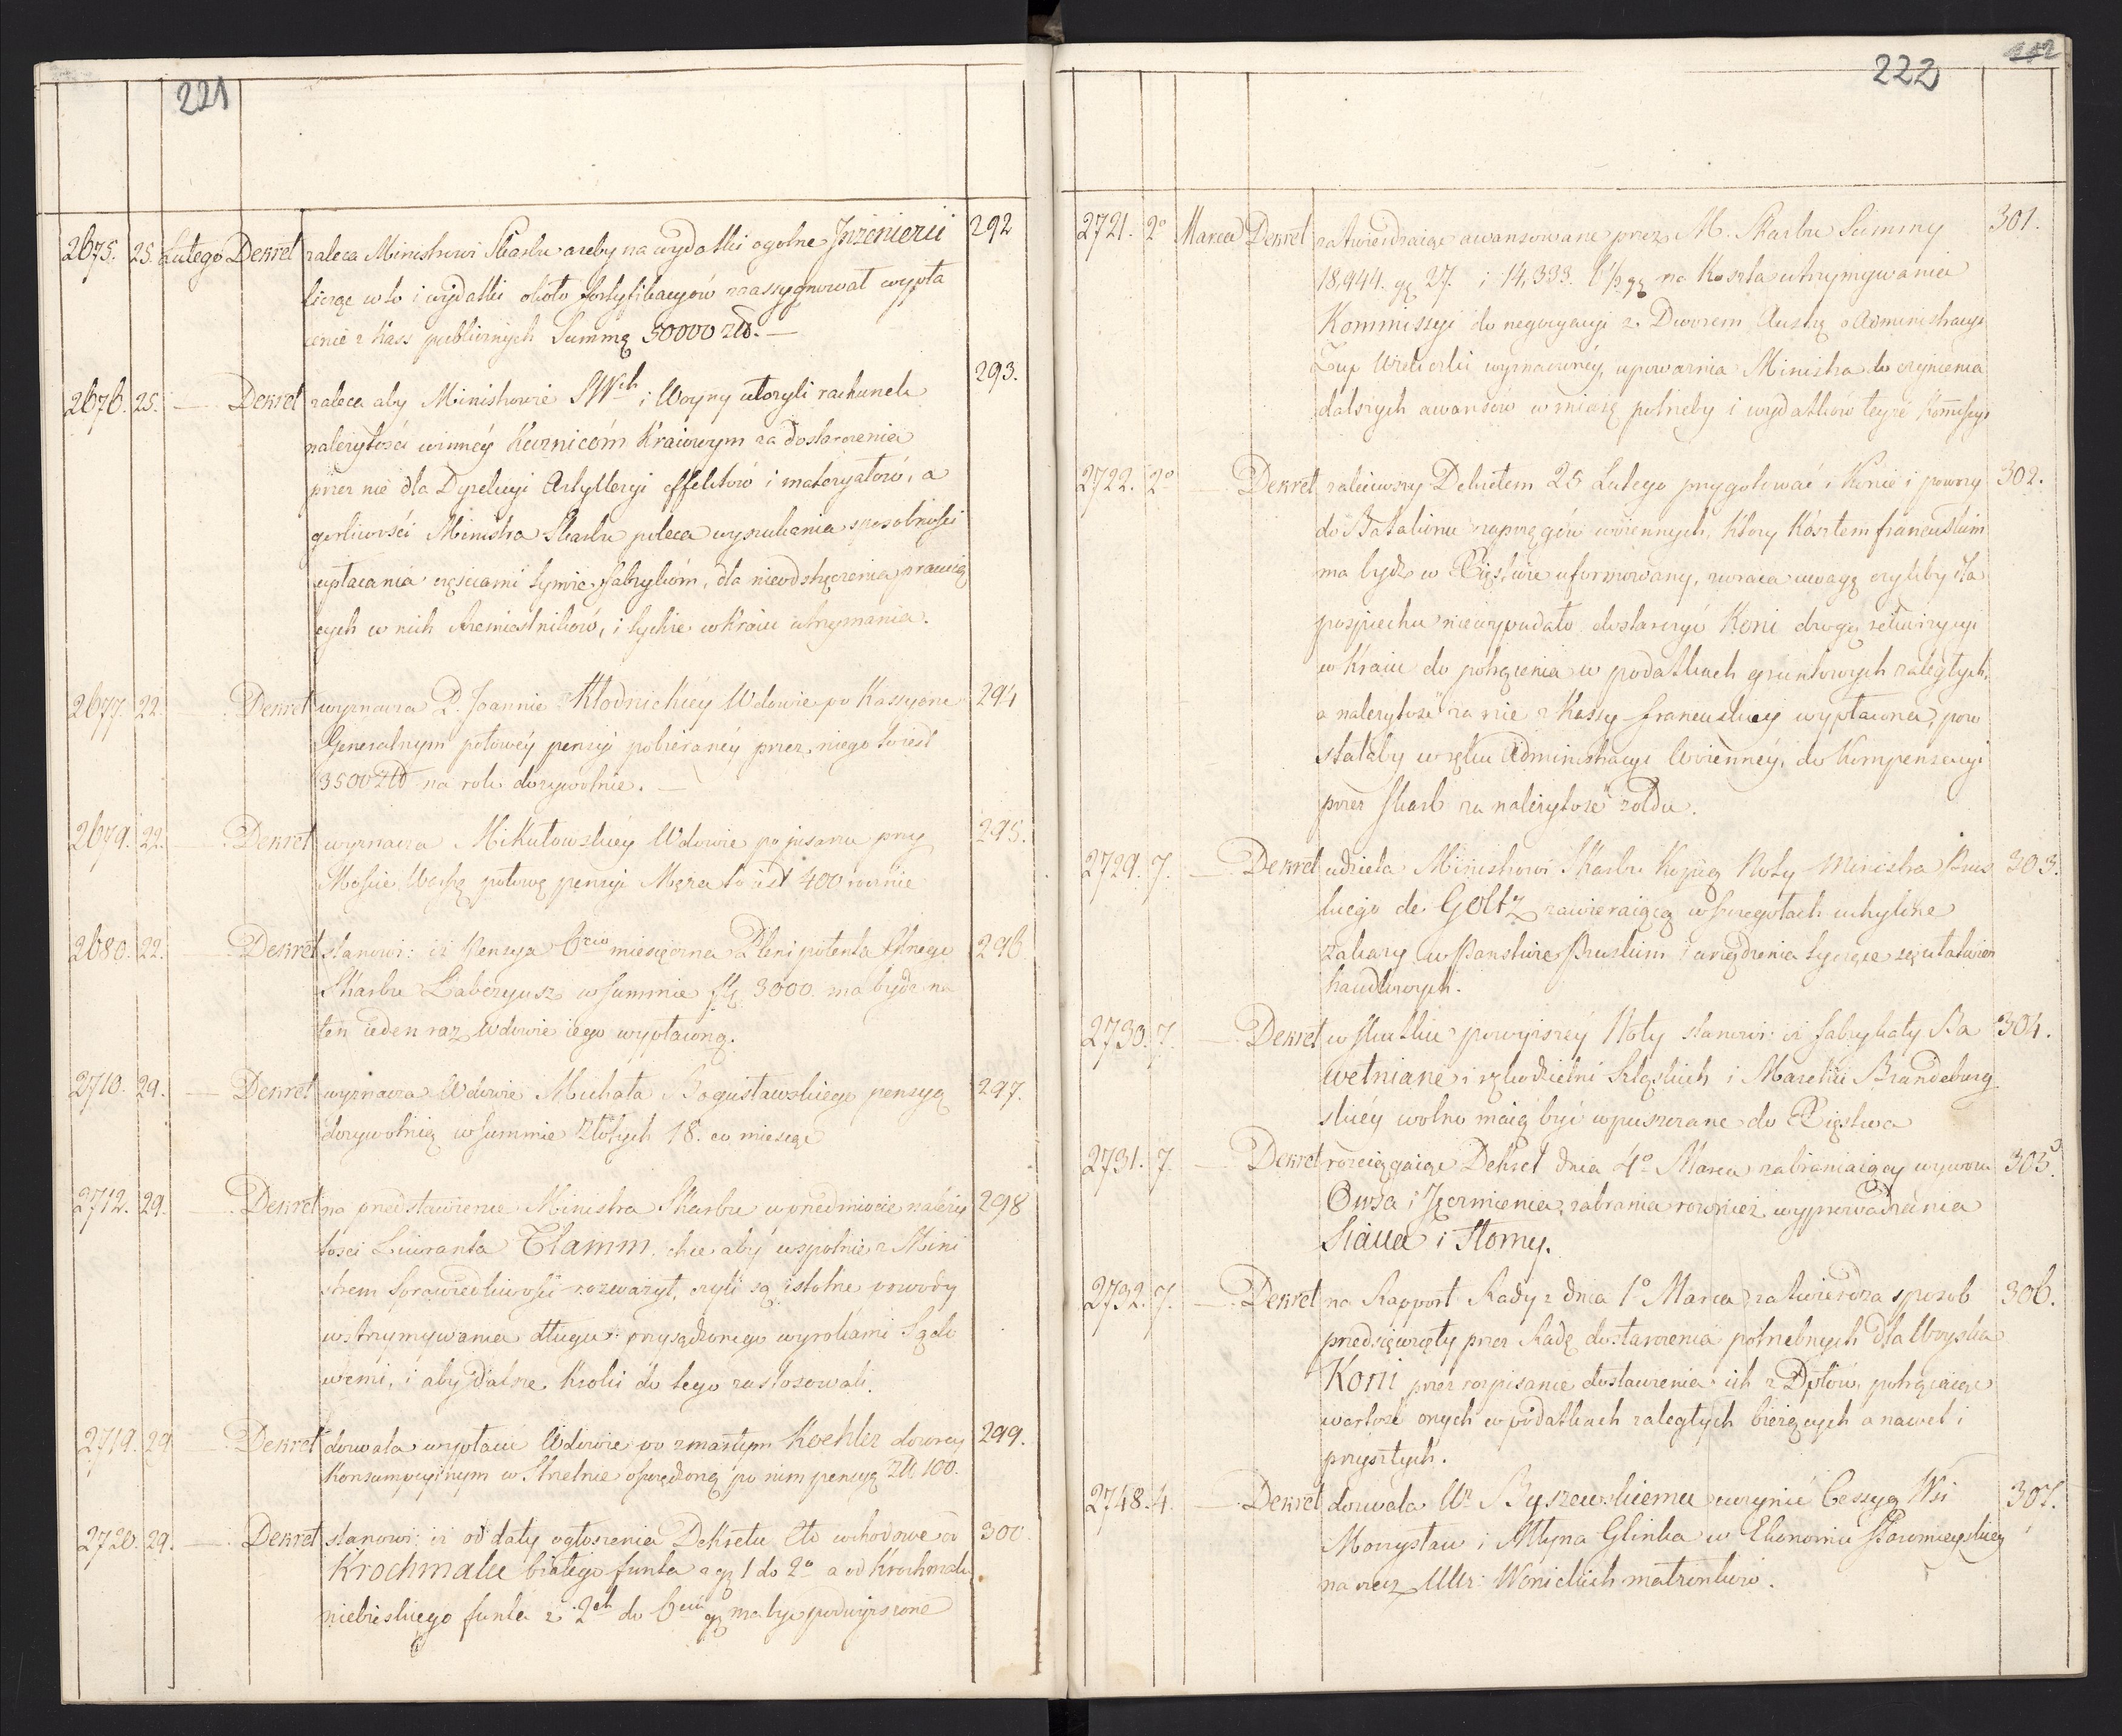 221
2675. 25. Lutego Dekret zaleca Ministrowi Skarbu azeby na wydatki ogolne Inżenierii 292
licząc w to i wydatki około fortyfikacyów zaassygnował wypła
cenie z Kass publicznych Summę 50000 złł. —
2676. 25. — Dekret zaleca aby Ministrowie SWch i Woyny ułożyli rachunek 293.
należytości winnéy Kuznicóm Kraiowym za dostarczenia
przez nie dla Dyrekcyi Artylleryi effektów i materyałów, a
gorliwości Ministra Skarbu poleca wyszukania sposobności
wpłacania częściami tymże fabrykóm, dla nieodstręczenia pracuią
cych w nich rzemieślników, i tychże w Kraiu utrzymania.
2677. 22. Dekret wyznacza P. Joannie Kłodnickiéy Wdowie po Kassyerze 294
Generalnym połowéy pensyi pobieranéy przez niego to iest
3500 złł na rok dożywotnie. —
2679. 22. — Dekret wyznacza Mikułowskiéy Wdowie po pisarzu przy 295.
Moście połowę pensyi Męża to iest 400 rocznie
2680. 22. — Dekret stanowi: iż Pensya 6cio miesięczna Plenipotenta Glnego 296
Skarbu Labezyusz w summie fl. 3000. ma bydź na
ten ieden raz wdowie iego wypłacona.
2710. 29. — Dekret wyznacza Wdowie Michała Bogusławskiego pensyą 297.
dożywotnią w summie Złotych 18. co miesiąc
2712. 29. — Dekret na przedstawienie Ministra Skarbu w przedmiocie należy 298
tości Liweranta Tlamm. chce aby wspolnie z Mini
strem Sprawiedliwości rozważył, czyli są istotne powody
wstrzymywania długu przysądzonego wyrokami Sądo
wemi, i aby dalsze kroki do tego zastosowali.
2719. 29 — Dekret dozwala wypłacić Wdowie po zmarłym Koehler dozorcy 299.
Konsumpcyinym w Strzelnie osądzoną po nim pensyą Zł 100.
2720. 29. — Dekret stanowi: iż od daty ogłoszenia Dekretu Cło wchodowe od 300.
Krochmalu białego funta z gr 1 do 2o a od Krochmalu
niebieskiego funta z 2ch do 6ciu gr ma być podwyższone
222
112
2721. 2o Marca Dekret zatwierdzaiąc awansowane przez M. Skarbu Summy 301.
18,944. gr 27. i 14,333. gr na Koszta utrzymywania
Kommissyi do negocyacyi z Dworem Austr o Administracyi
Żup Wieliczki wyznaczonéy, upoważnia Ministra do czynienia
dalszych awansów w miarę potrzeby i wydatków teyże Kommissyi
2722. 2o — Dekret zaleciwszy Dekretem 25 Lutego przygotować i Konie i powozy 302.
do Batalionu zaprzęgów woiennych, który Kosztem francuskim
ma bydź w Xięstwie uformowany, zwraca uwagę czyliby dla
pospiechu niewypadało dostarczyć Koni drogą rekwizycyi
w Kraiu do potrącenia w podatkach gruntowych zaległych,
a należytość za nie z Kassy francuskiey wypłacona, pozo
stałaby w ręku Administracyi Woiennéy, do Kompensacyi
przez skarb za należytość żołdu.
2729. 7. — Dekret udziela Ministrowi Skarbu Kopiią Noty Ministra Prus 303.
kiego de Goltz zawieraiącą w szczegołach uchylone
zakazy w Panstwie Pruskim i urządzenia tyczące się ułatwień
handlowych.
2730. 7. — Dekret w skutku powyższéy Noty stanowi: iż fabrykaty Ba 304.
wełniane i rękodzielni Szląskich i Marchii Brandeburg
skiéy wolno maią być wpuszczane do Xięstwa
2731. 7. — Dekret rozciągaiąc Dekret dnia 4o Marca zabraniaiący wywozu 305.
Owsa i Jęczmienia, zabrania rownież wyprowadzenia
Siana i Słomy.
2732. 7. — Dekret na Rapport Rady z dnia 1o Marca zatwierdza sposob 306.
przedsięwzięty przez Radę dostarczenia potrzebnych dla Woyska
Koni przez rozpisanie dostawienia ich z Dptów, potrącaiąc
wartość onych w podatkach zaległych bieżących a nawet i
przyszłych.
2748. 4. — Dekret dozwala Ur. Byszewskiemu uczynić Cessyą Wsi 307.
Morzysław i Młyna Glinka w Ekonomii
na rzecz UUr: Wonickich małżonków.